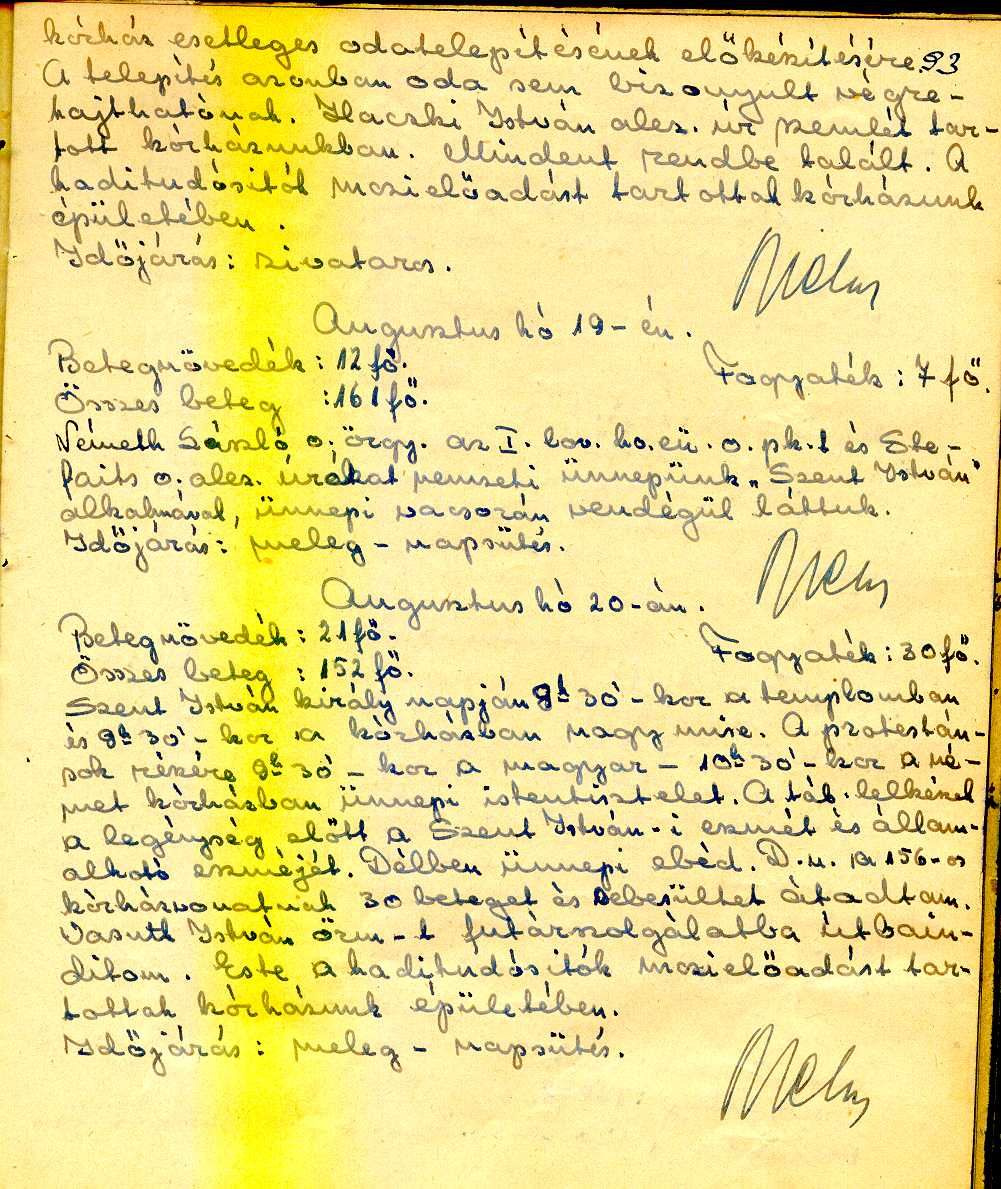 kórház esetleges odatelepítésének előkészítésére. 93
A telepítés azonban oda sem bizonyult végre-
hajthatónak. Ilaczki István alez. úr szemlét tar-
tott kórházunkban. Mindent rendbe talált. A
haditudósitók mozielőadást tartottak kórházunk
épületében.
Időjárás: zivataros.
Augusztus hó 19-én.
Betegnövedék: 12 fő. Fogyaték: 7 fő.
Összes beteg : 161 fő.
Németh László o. örgy. az I. lov. ho. eü. o. pk.-t és Ste-
faits o. alez. úrákat nemzeti ünnepünk „Szent István"
alkalmával, ünnepi vacsorán vendégül láttuk.
Időjárás: meleg - napsütés.
Augusztus hó 20-án.
Betegnövedék: 21 fő. Fogyaték: 30 fő.
Összes beteg : 152 fő.
Szent István király napján 8h 30' - kor a templomban
és 9h 30' - kor a kórházban nagy mise. A protestán-
sok részére 9h 30' - kor a magyar - 10h 30' - kor a né-
met kórházban ünnepi istentisztelet. A táb. lelkészek
a legénység előtt a Szent István-i eszmét és állam-
alkotó eszméjét. Délben ünnepi ebéd. D.u. a 156-os
kórházvonatnak 30 beteget és sebesültet átadtam.
Vasutt István őrm-t futárszolgálatba útbain-
ditom. Este a haditudósítók mozielőadást tar-
tottak kórházunk épületében.
Időjárás: meleg - napsütés.